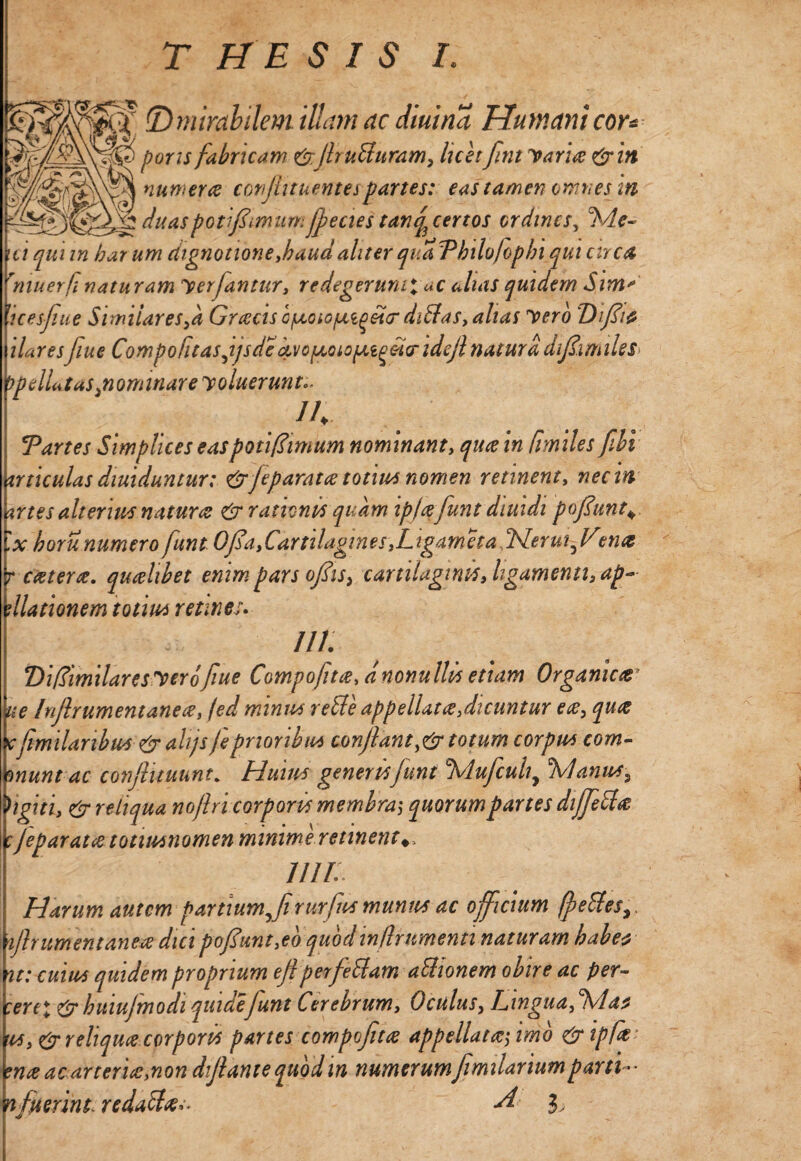 THESIS I.
Dmirabilem illam ac diuinā Humani cor-
poris fabricam & structuram, licèt sint variæ & in
numeræ constituentes partes: eas tamen omnes in
duas potißimum species tanq; certos ordines, Me-
ici qui in harum dignotione, haud aliter quā Philosophi qui circa
niuersi naturam versantur, redegerunt; ac alias quidem Sim-
licesſiue Similares, à Græcis ὁμοιομερεῖσ dictas, alias verò Dißi-
ilares siue Compositas, ijsdē ἀνομοιομερεῖσ idest naturâ dißimiles
ppellatas, nominare voluerunt.
II.
Partes Simplices eas potißimum nominant, quæ in similes sibi
articulas diuiduntur: & separatæ totius nomen retinent, nec in
artes alterius naturæ & rationis quàm ipsæ sunt diuidi poßunt.
Ex horū numero sunt Oßa, Cartilagines, Ligamēta, Nerui, Venæ
r cætera. quælibet enim pars oßis, cartilaginis, ligamenti, ap-
ellationem totius retinet.
III.
Dißimilares verò siue Compositæ, à nonullis etiam Organicæ
ue Instrumentaneæ, sed minus rectè appellatæ, dicuntur eæ, quæ
x similaribus & alijs se prioribus constant, & totum corpus com-
onunt ac constituunt. Huius generis sunt Musculi, Manus,
Digiti, & reliqua nostri corporis membra; quorum partes dissectæ
c separatæ totius nomen minimè retinent.
IIII.
Harum autem partium, si rursus munus ac officium spectes,
nstrumentaneæ dici poßunt, eò quòd instrumenti naturam habe-
nt: cuius quidem proprium est perfectam actionem obire ac per-
cere; & huiusmodi quidē sunt Cerebrum, Oculus, Lingua, Ma-
us, & reliquæ corporis partes compositæ appellatæ; imò & ipsæ
enæ ac arteriæ, non obstante quòd in numerum similarium parti-
n fuerint redactæ.
A 3